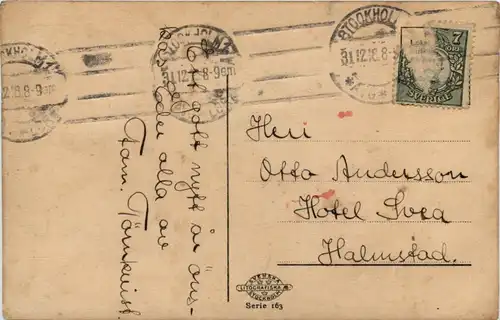 STOCKHOLM
31.12.18.8-9
7
ÖRE
SVERIGE
Ett gott nytt år öns-
kas Eder alla av
Fam. Törnkvist.
Herr
Otto Andersson
Hotel Svea
Halmstad.
SVENSKA
LITOGRAFISKA AB
STOCKHOLM
Serie 163